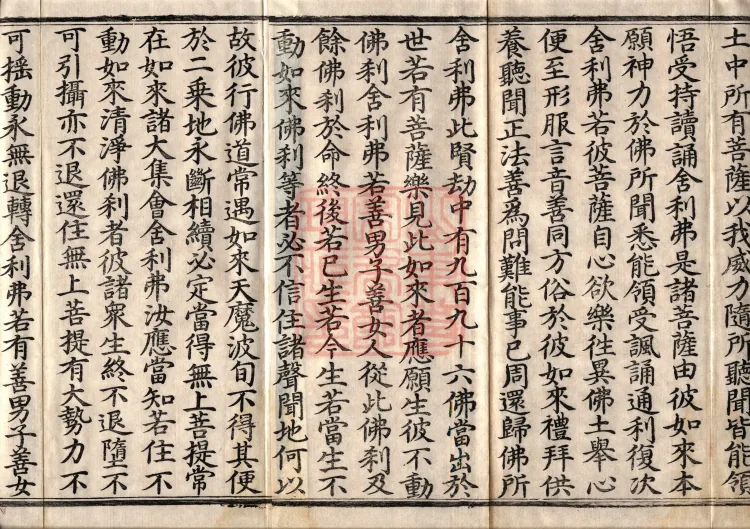 土中所有菩薩以我威力隨所聽聞皆能領
悟受持讀誦舍利弗是諸菩薩由彼如來本
願神力於佛所聞悉能領受諷誦通利復次
舍利弗若彼菩薩自心欲樂往異佛土舉心
便至形服言音善同方俗於彼如來禮拜供
養聽聞正法善爲問難能事已周還歸佛所
舍利弗此賢劫中有九百九十六佛當出於
世若有菩薩樂見此如來者應願生彼不動
佛刹舍利弗若善男子善女人從此佛刹及
餘佛刹於命終後若已生若今生若當生不
動如來佛刹等者必不信住諸聲聞地何以
故彼行佛道常遇如來天魔波旬不得其便
於二乗地永斷相續必定當得無上菩提常
在如來諸大集會舍利弗汝應當知若住不
動如來清淨佛利者彼諸衆生終不退墮不
可引攝亦不退還住無上菩提有大勢力不
可揺動永無退轉舍利弗若有善男子善女